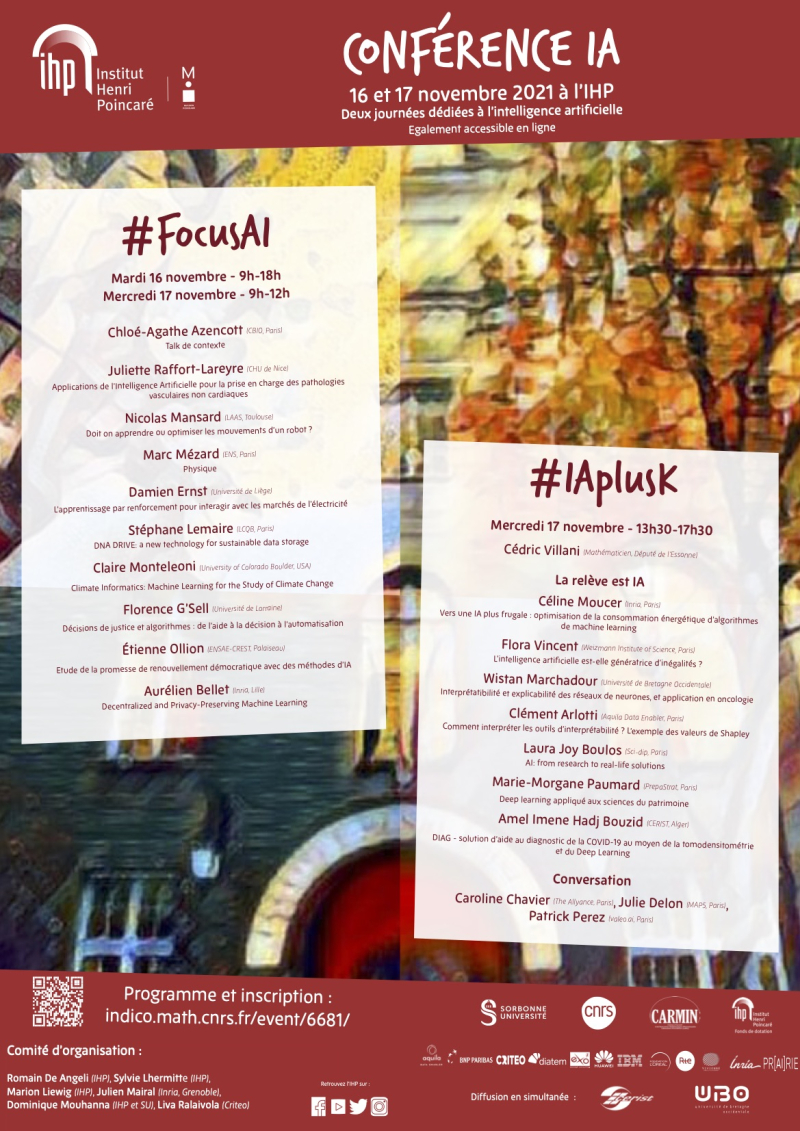 ihp Institut
Henri
Poincaré
CONFÉRENCE IA
16 et 17 novembre 2021 à l'IHP
Deux journées dédiées à l'intelligence artificielle
Egalement accessible en ligne
#FocusAI
Mardi 16 novembre - 9h-18h
Mercredi 17 novembre - 9h-12h
Chloé-Agathe Azencott (CBIO, Paris)
Talk de contexte
Juliette Raffort-Lareyre (CHU de Nice)
Applications de l'Intelligence Artificielle pour la prise en charge des pathologies
vasculaires non cardiaques
Nicolas Mansard (LAAS, Toulouse)
Doit on apprendre ou optimiser les mouvements d'un robot ?
Marc Mézard (ENS, Paris)
Physique
Damien Ernst (Université de Liège)
L'apprentissage par renforcement pour interagir avec les marchés de l'électricité
Stéphane Lemaire (LCQB, Paris)
DNA DRIVE: a new technology for sustainable data storage
Claire Monteleoni (University of Colorado Boulder, USA)
Climate Informatics: Machine Learning for the Study of Climate Change
Florence G'Sell (Université de Lorraine)
Décisions de justice et algorithmes : de l'aide à la décision à l'automatisation
Étienne Ollion (ENSAE-CREST, Palaiseau)
Etude de la promesse de renouvellement démocratique avec des méthodes d'IA
Aurélien Bellet (Inria, Lille)
Decentralized and Privacy-Preserving Machine Learning
#IAplusK
Mercredi 17 novembre - 13h30-17h30
Cédric Villani (Mathématicien, Député de l'Essonne)
La relève est IA
Céline Moucer (Inria, Paris)
Vers une IA plus frugale : optimisation de la consommation énergétique d'algorithmes
de machine learning
Flora Vincent (Weizmann Institute of Science, Paris)
L'intelligence artificielle est-elle génératrice d'inégalités ?
Wistan Marchadour (Université de Bretagne Occidentale)
Interprétatibilité et explicabilité des réseaux de neurones, et application en oncologie
Clément Arlotti (Aquila Data Enabler, Paris)
Comment interpréter les outils d'interprétabilité ? L'exemple des valeurs de Shapley
Laura Joy Boulos (Sci-dip, Paris)
AI: from research to real-life solutions
Marie-Morgane Paumard (PrepaStrat, Paris)
Deep learning appliqué aux sciences du patrimoine
Amel Imene Hadj Bouzid (CERIST, Alger)
DIAG - solution d'aide au diagnostic de la COVID-19 au moyen de la tomodensitométrie
et du Deep Learning
Conversation
Caroline Chavier (The Allyance, Paris), Julie Delon (MAP5, Paris),
Patrick Perez (valeo.ai, Paris)
Programme et inscription :
indico.math.cnrs.fr/event/6681/
Comité d'organisation :
Romain De Angeli (IHP), Sylvie Lhermitte (IHP),
Marion Liewig (IHP), Julien Mairal (Inria, Grenoble),
Dominique Mouhanna (IHP et SU), Liva Ralaivola (Criteo)
Retrouvez l'IHP sur :
SORBONNE
UNIVERSITÉ
cnrs
CARMIN
ihp Institut
Henri
Poincaré
Fonds de dotation
aquila
BNP PARIBAS
CRITEO
diatem
exo
HUAWEI
IBM
L'ORÉAL
Rte
Inria
PR[AI]RIE
Diffusion en simultanée :
Cerist
UBO
université de bretagne
occidentale